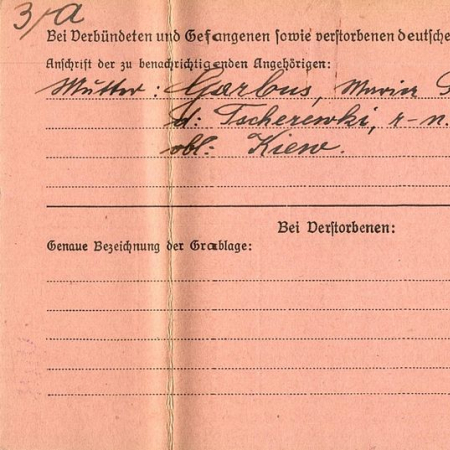 3/a
Bei Verbündeten und Gefangenen sowie verstorbenen deutsche
Anschrift der zu benachrichtigenden Angehörigen:
Mutter: Garbus, Maria
d: Tscherewki, r-n.
obl: Kiew.
Bei Verstorbenen:
Genaue Bezeichnung der Grablage: